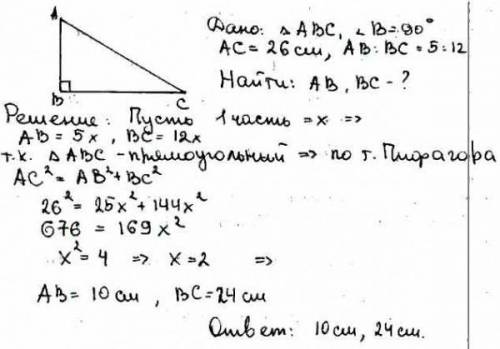 A
B
C
Дано: △ABC, ∠B=90°
AC=26см, AB:BC=5:12
Найти: AB, BC-?
Решение: Пусть 1часть =x =>
AB=5x, BC=12x
т.к. △ABC-прямоугольный => по т. Пифагора
AC²=AB²+BC²
26²=25x²+144x²
676=169x²
x²=4 => x=2 =>
AB=10см, BC=24см
Ответ: 10см, 24см.